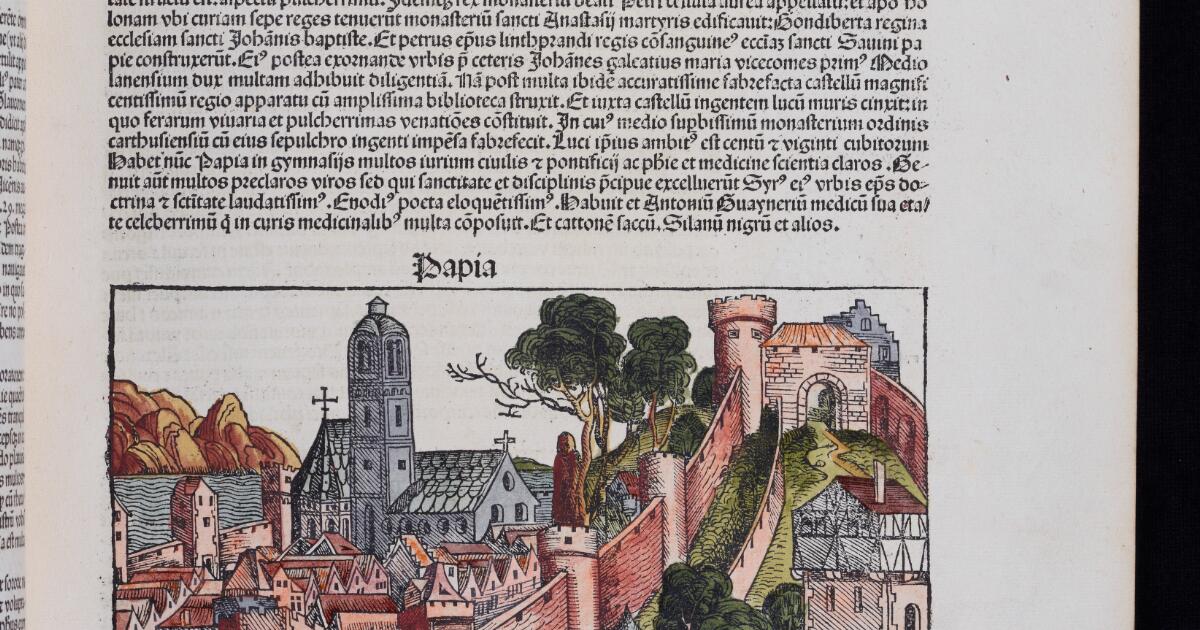 lonam vbi curiam sepe reges tenuerūt monasteriū sancti Anastasij martyris edificauit: Gondiberta regina
ecclesiam sancti Johānis baptiste. Et petrus ep̄us linthprandi regis cōsanguineꝰ ecciāz sancti Sauini pa
pie construxerūt. Eiꝰ postea exornande vrbis p̄ ceteris Johānes galeatius maria vicecomes primꝰ Medio
lanensium dux multam adhibuit diligentiā. Nā post multa ibidē accuratissime fabrefacta castellū magnifi
centissimū regio apparatu cū amplissima biblioteca struxit. Et iuxta castellū ingentem lucū muris cinxit: in
quo ferarum viuaria et pulcherrimas venatiōes cōstituit. In cuiꝰ medio sup̄bissimū monasterium ordinis
carthusiensiū cū eius sepulchro ingenti impēsa fabrefecit. Luci ip̄ius ambitꝰ est centū ⁊ viginti cubitorum
Habet nūc Papia in gymnasijs multos iurium ciuilis ⁊ pontificij ac phie et medicine scientia claros. Ge-
nuit aūt multos preclaros viros sed qui sanctitate et disciplinis p̄cipue excelluerūt Syrꝰ eiꝰ vrbis ep̄s do-
ctrina ⁊ sctitate laudatissimꝰ. Enodiꝰ poeta eloquētissimꝰ. Habuit et Antoniū Guayneriū medicū sua eta/
te celeberrimū q̄ in curis medicinalibꝰ multa cōposuit. Et cattonē saccū. Silanū nigrū et alios.
Papia